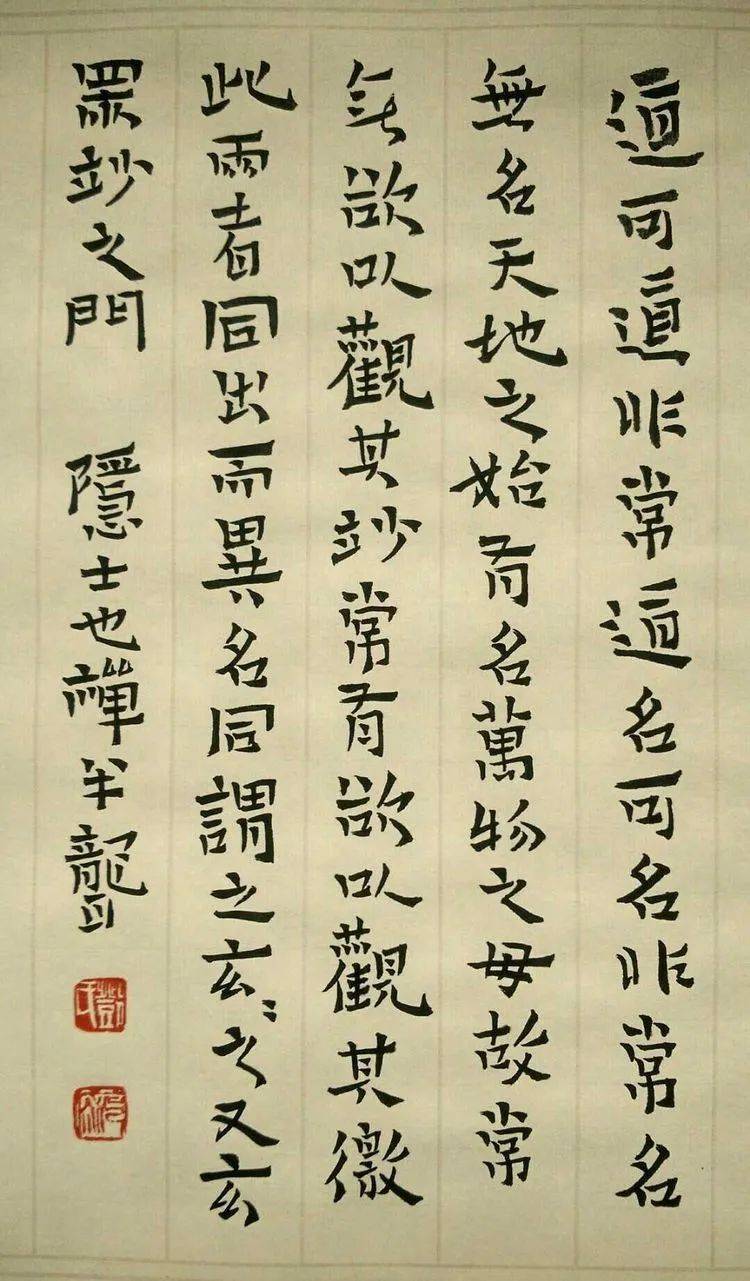 道可道非常道名可名非常名
無名天地之始有名萬物之母故常
無欲以觀其竗常有欲以觀其徼
此兩者同出而異名同謂之玄〻之又玄
眾竗之門 隱士也禪半聾